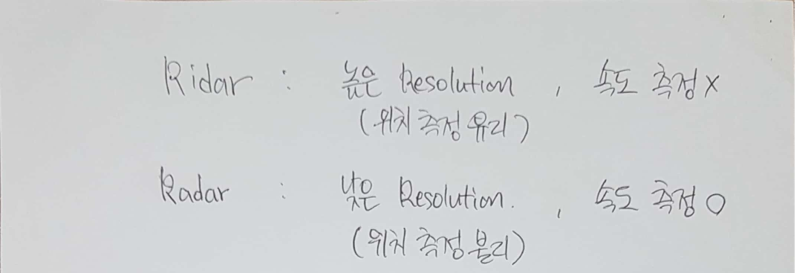 Ridar : 높은 Resolution , 속도 측정 X
(위치 측정 유리)
Radar : 낮은 Resolution. , 속도 측정 O
(위치 측정 불리)